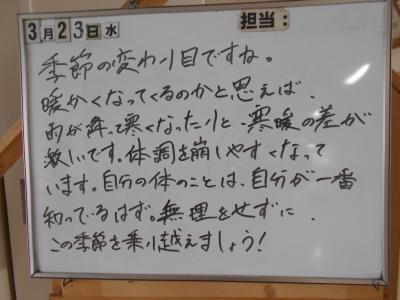 3月23日水 担当：
季節の変わり目ですね。
暖かくなってくるのかと思えば、
雨が降って寒くなったりと、寒暖の差が
激しいです。体調を崩しやすくなって
います。自分の体のことは、自分が一番
知っているはず。無理をせずに、
この季節を乗り越えましょう！